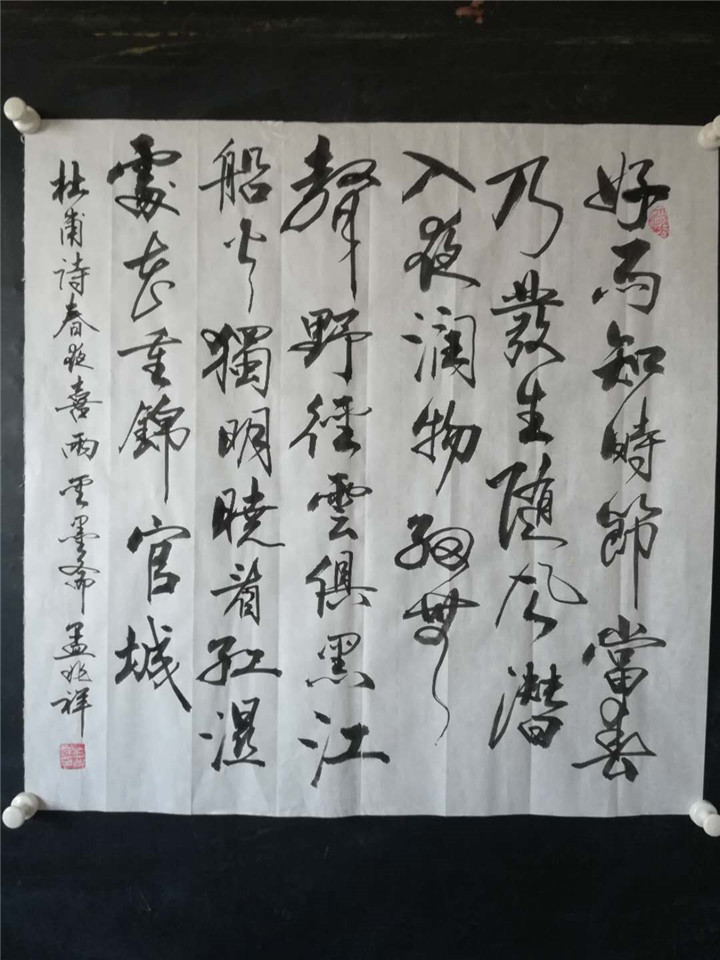 好雨知時節當春
乃發生随风潛
入夜润物细無
聲野徑雲俱黑江
船火獨明曉看红濕
處花重錦官城
杜甫诗春夜喜雨雲墨斋孟兆祥